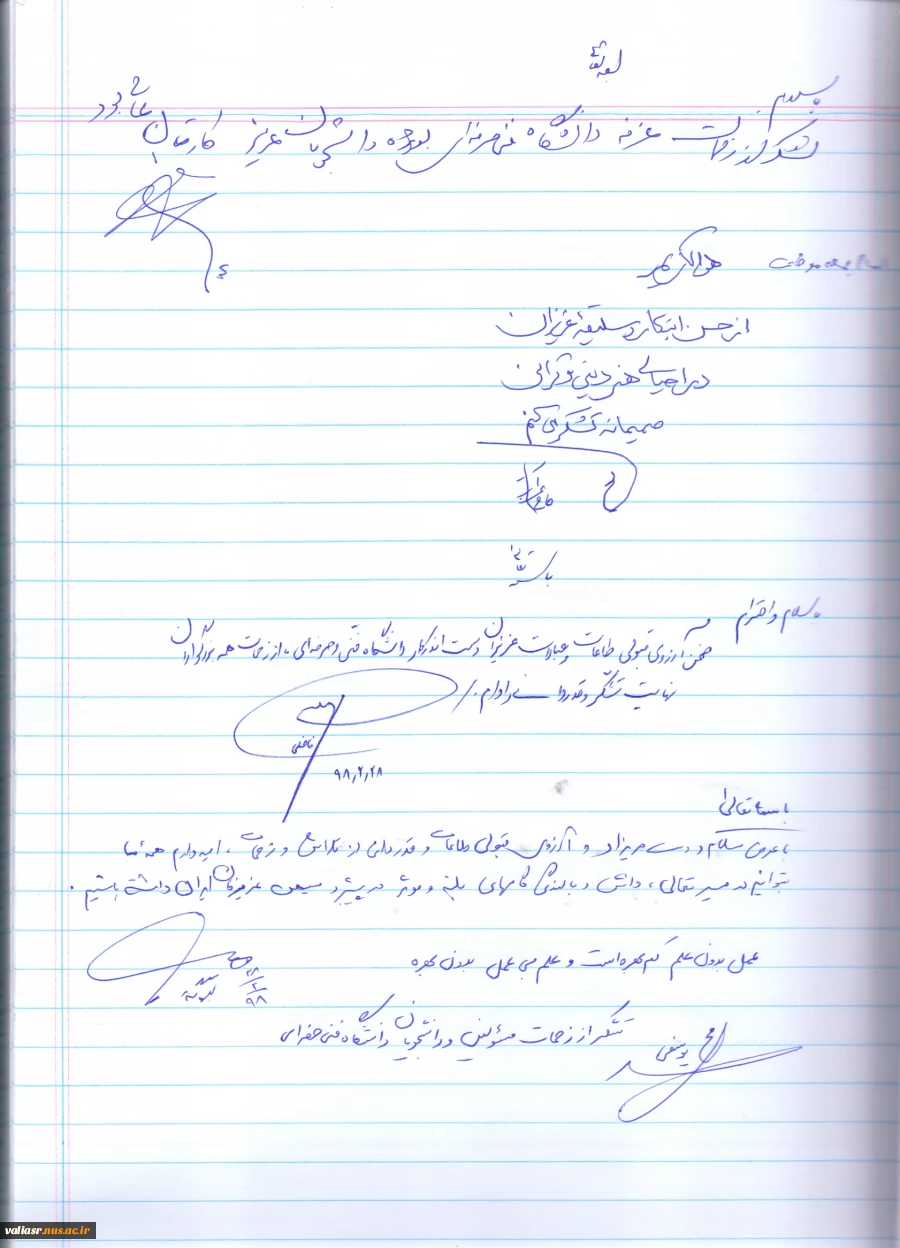 بسلام
تشکر از زحمات غرفه دانشگاه فنی حرفه‌ای بویژه دانشجویان عزیز کارتان عالی بود
هوالکریم
از حسن ابتکار و سلیقه عزیزان
در احیای هنر دینی و قرآنی
صمیمانه تشکر می‌کنم
با سلام و احترام
ضمن آرزوی قبولی طاعات و عبادت عزیزان دست اندرکار دانشگاه فنی و حرفه‌ای، از زحمات همه بزرگواران
نهایت تشکر و قدردانی را دارم.
۹۸,۲,۲۸
باسمه تعالی
با عرض سلام و و آرزوی قبولی طاعات و قدردانی از تلاش و زحمات، امیدوارم همه ما
بتوانیم در مسیر تعالی، دانش و بالندگی گامهای بلند و موثر در پیشبرد میهن عزیزمان ایران داشته باشیم.
عمل بدون علم کم بهره است و علم بی عمل بدون بهره
تشکر از زحمات مسؤولین و دانشجویان دانشگاه فنی حرفه‌ای
یوسفی
valiasr.nus.ac.ir